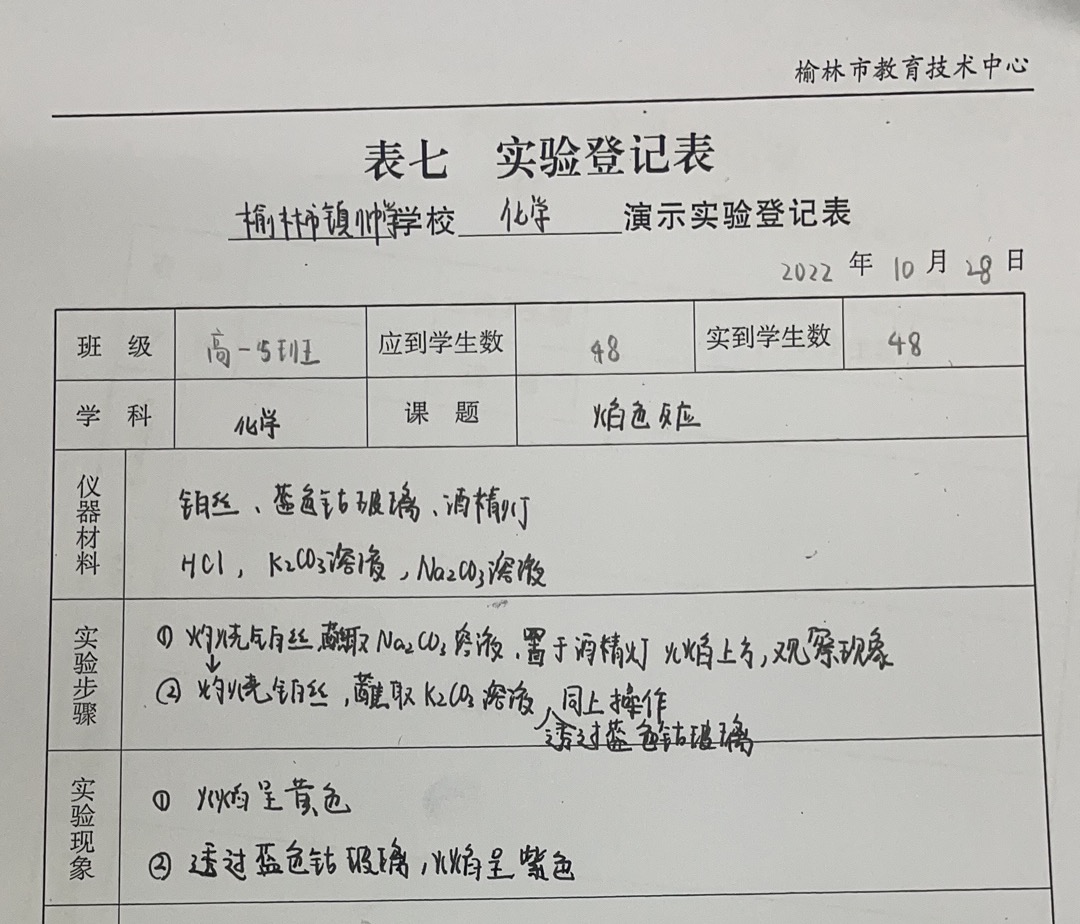 榆林市教育技术中心
表七 实验登记表
榆林市镇川中学学校 化学 演示实验登记表
2022 年 10 月 28 日
班 级 高一5班 应到学生数 48 实到学生数 48
学 科 化学 课 题 焰色反应
仪器材料
铂丝、蓝色钴玻璃、酒精灯
HCl, K2CO3溶液, Na2CO3溶液
实验步骤
① 灼烧铂丝蘸取Na2CO3溶液、置于酒精灯火焰上方,观察现象
↓
② 灼烧铂丝,蘸取K2CO3溶液,同上操作
透过蓝色钴玻璃
实验现象
① 火焰呈黄色
② 透过蓝色钴玻璃,火焰呈紫色